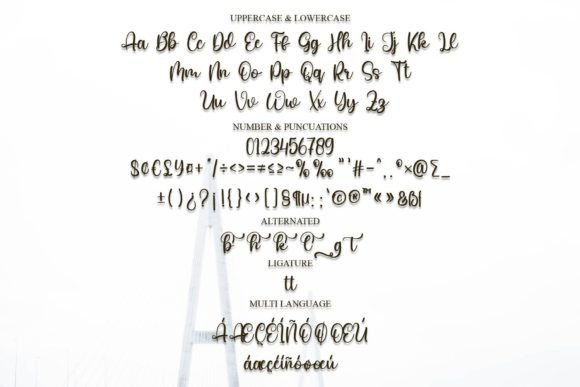 UPPERCASE & LOWERCASE
Aa Bb Cc Dd Ee Ff Gg Hh Ii Jj Kk Ll
Mm Nn Oo Pp Qq Rr Ss Tt
Uu Vv Ww Xx Yy Zz
NUMBER & PUNCUATIONS
0123456789
$¢€£¥¤+*/÷<>=≠≤≥~%‰"'#-^,.º×@Σ_
±()¿?¡!{}‹›[]§¶µ:;‘©®™«»&ß|
ALTERNATED
b h k C g T
LIGATURE
tt
MULTI LANGUAGE
ÁÆÇÉÍÑÓØŒÚ
áæçéíñóøœú